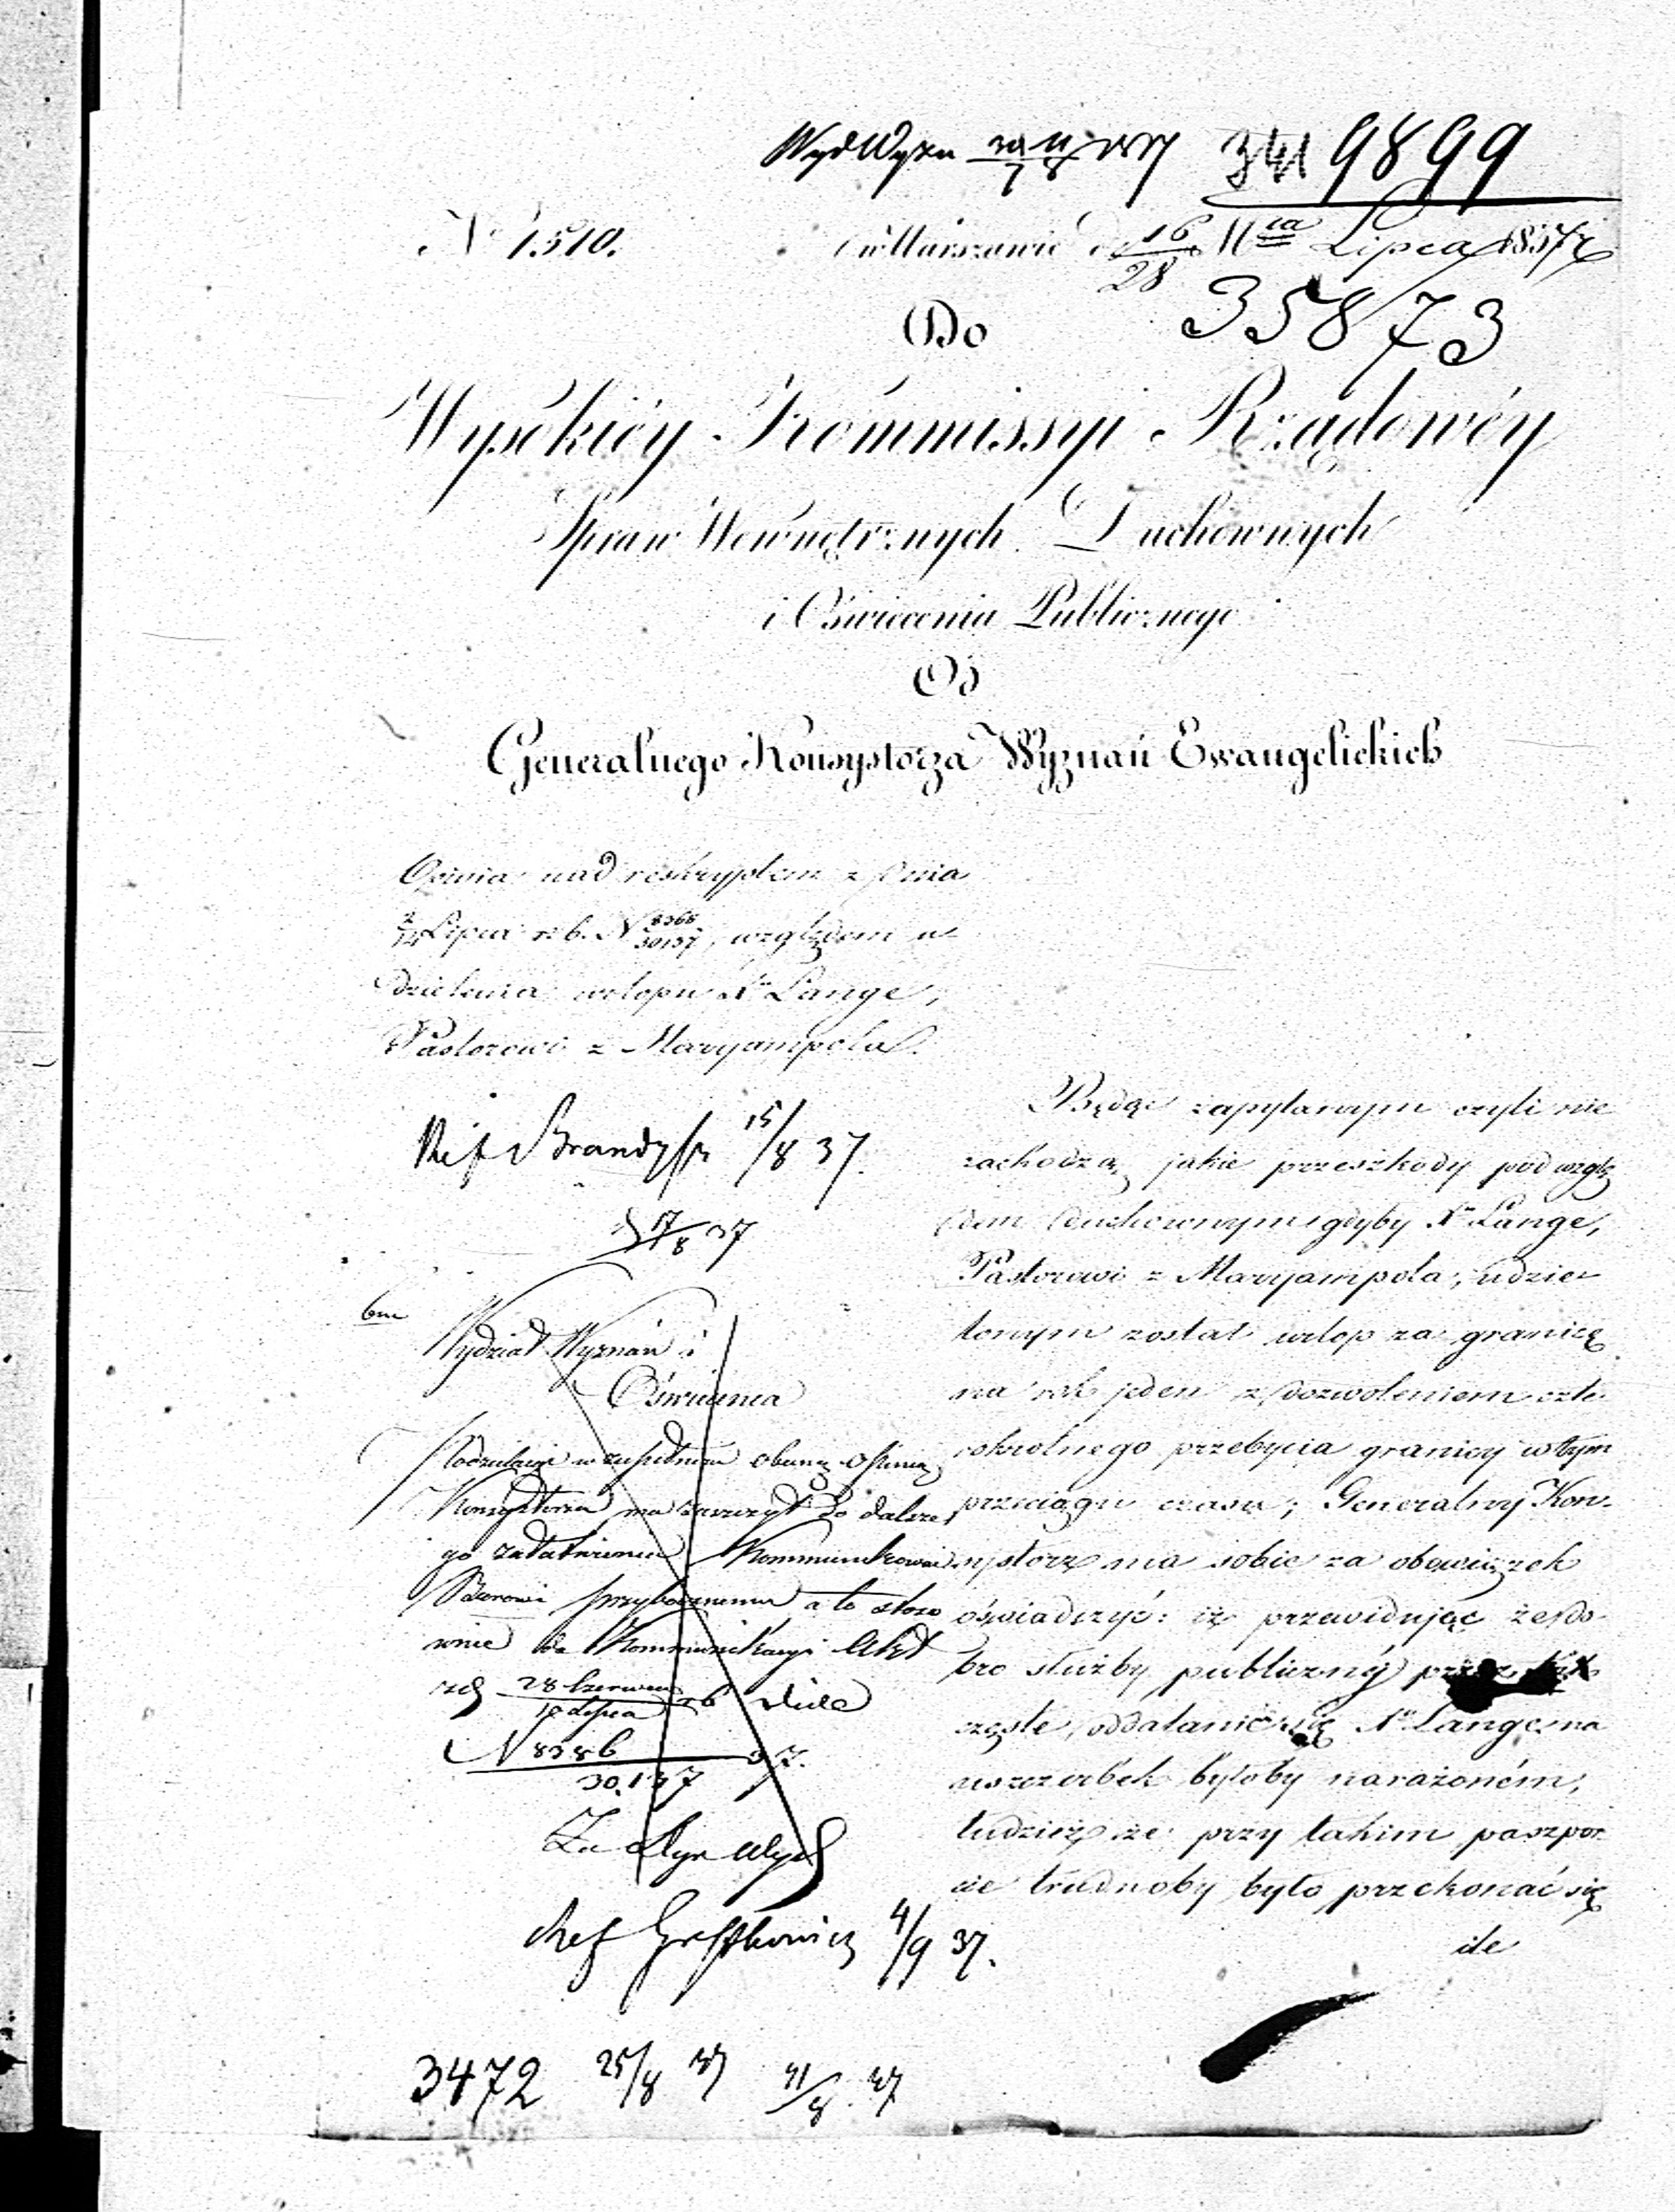 WydWyzn 1837 9899
N 1510. w Warszawie d 16/28 Mca Lipca 1837 r
35873
Do
Wysokiéy Kommissyi Rządowéy
Spraw Wewnętrznych Duchownych
i Oświecenia Publicznego
Od
Generalnego Konsystorza Wyznań Ewangelickich
Opinia nad reskryptem z dnia
2/14 Lipca r. b. N 30137, względem u-
dzielenia urlopu Xu Lange,
Pastorowi z Maryampola.
Ref 15/8 37.
17/8 37
Wydział Wyznań i
Oświecenia
opinią
Konsystorza ma zaszczyt do dalsze
go załatwienia kommunikować
przybocznemu a to stoso
wnie do Kommunikacyi
28 Czerwca/10 Lipca rb
N 8386/30.137 37.
Ref 4/9 37.
3472 25/8 37 31/8 37
Będąc zapytanym czyli nie
zachodzą jakie przeszkody pod wzglę
dem duchownym gdyby Xu Lange,
Pastorowi z Maryampola, udzie
lonym został urlop za granicę
na rok jeden z dozwoleniem czte-
rokrotnego przebycia granicy w tym
przeciągu czasu; Generalny Kon-
systorz ma sobie za obowiązek
oświadczyć: iż przewidując że do-
bro służby publicznéj przez
częste oddalanie się Xa Lange na
uszczerbek byłoby narażoném,
tudzież że przy takim paszpor
cie trudnoby było przekonać się
ile